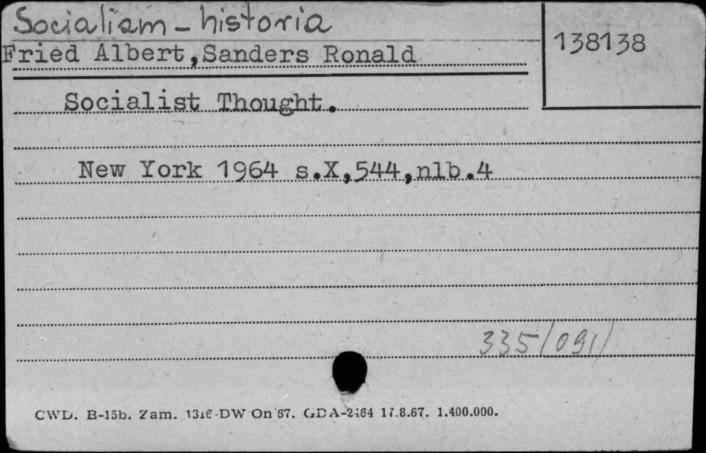 Socializm - historia
138138
Fried Albert,Sanders Ronald
Socialist Thought.
New York 1964 s.X,544,nlb.4
335/091/
CWD. B-15b. Zam. 1316-DW On 67. GDA-2464 17.8.67. 1.400.000.